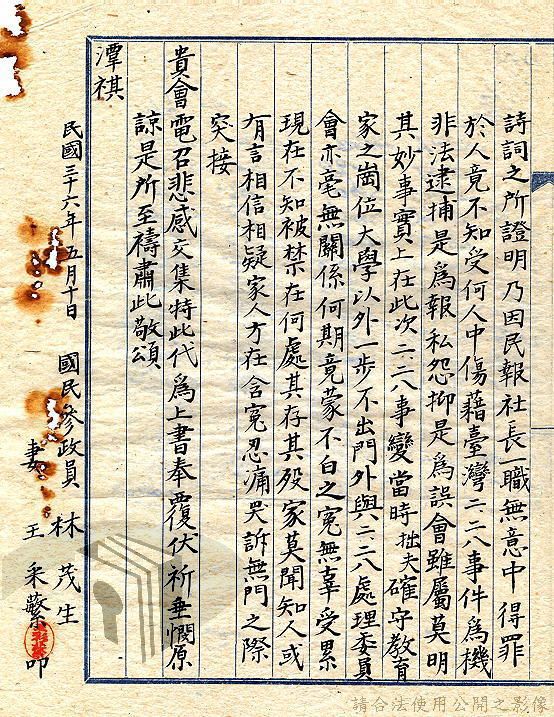 詩詞之所證明乃因民報社長一職無意中得罪
於人竟不知受何人中傷藉臺灣二、二八事件為機
非法逮捕是為報私怨抑是為誤會雖屬莫明
其妙事實上在此次二、二八事變當時拙夫確守教育
家之崗位大學以外一步不出門外與二、二八處理委員
會亦毫無關係何期竟蒙不白之冤無辜受累
現在不知被禁在何處其存其歿家莫聞知人或
有言相信相疑家人方在含冤忍痛哭訴無門之際
突接
貴會電召悲感交集特此代為上書奉覆伏祈垂憫原
諒是所至禱肅此敬頌
潭祺
民國三十六年五月十日
國民參政員 林茂生
妻 王采蘩 叩
請合法使用公開之影像